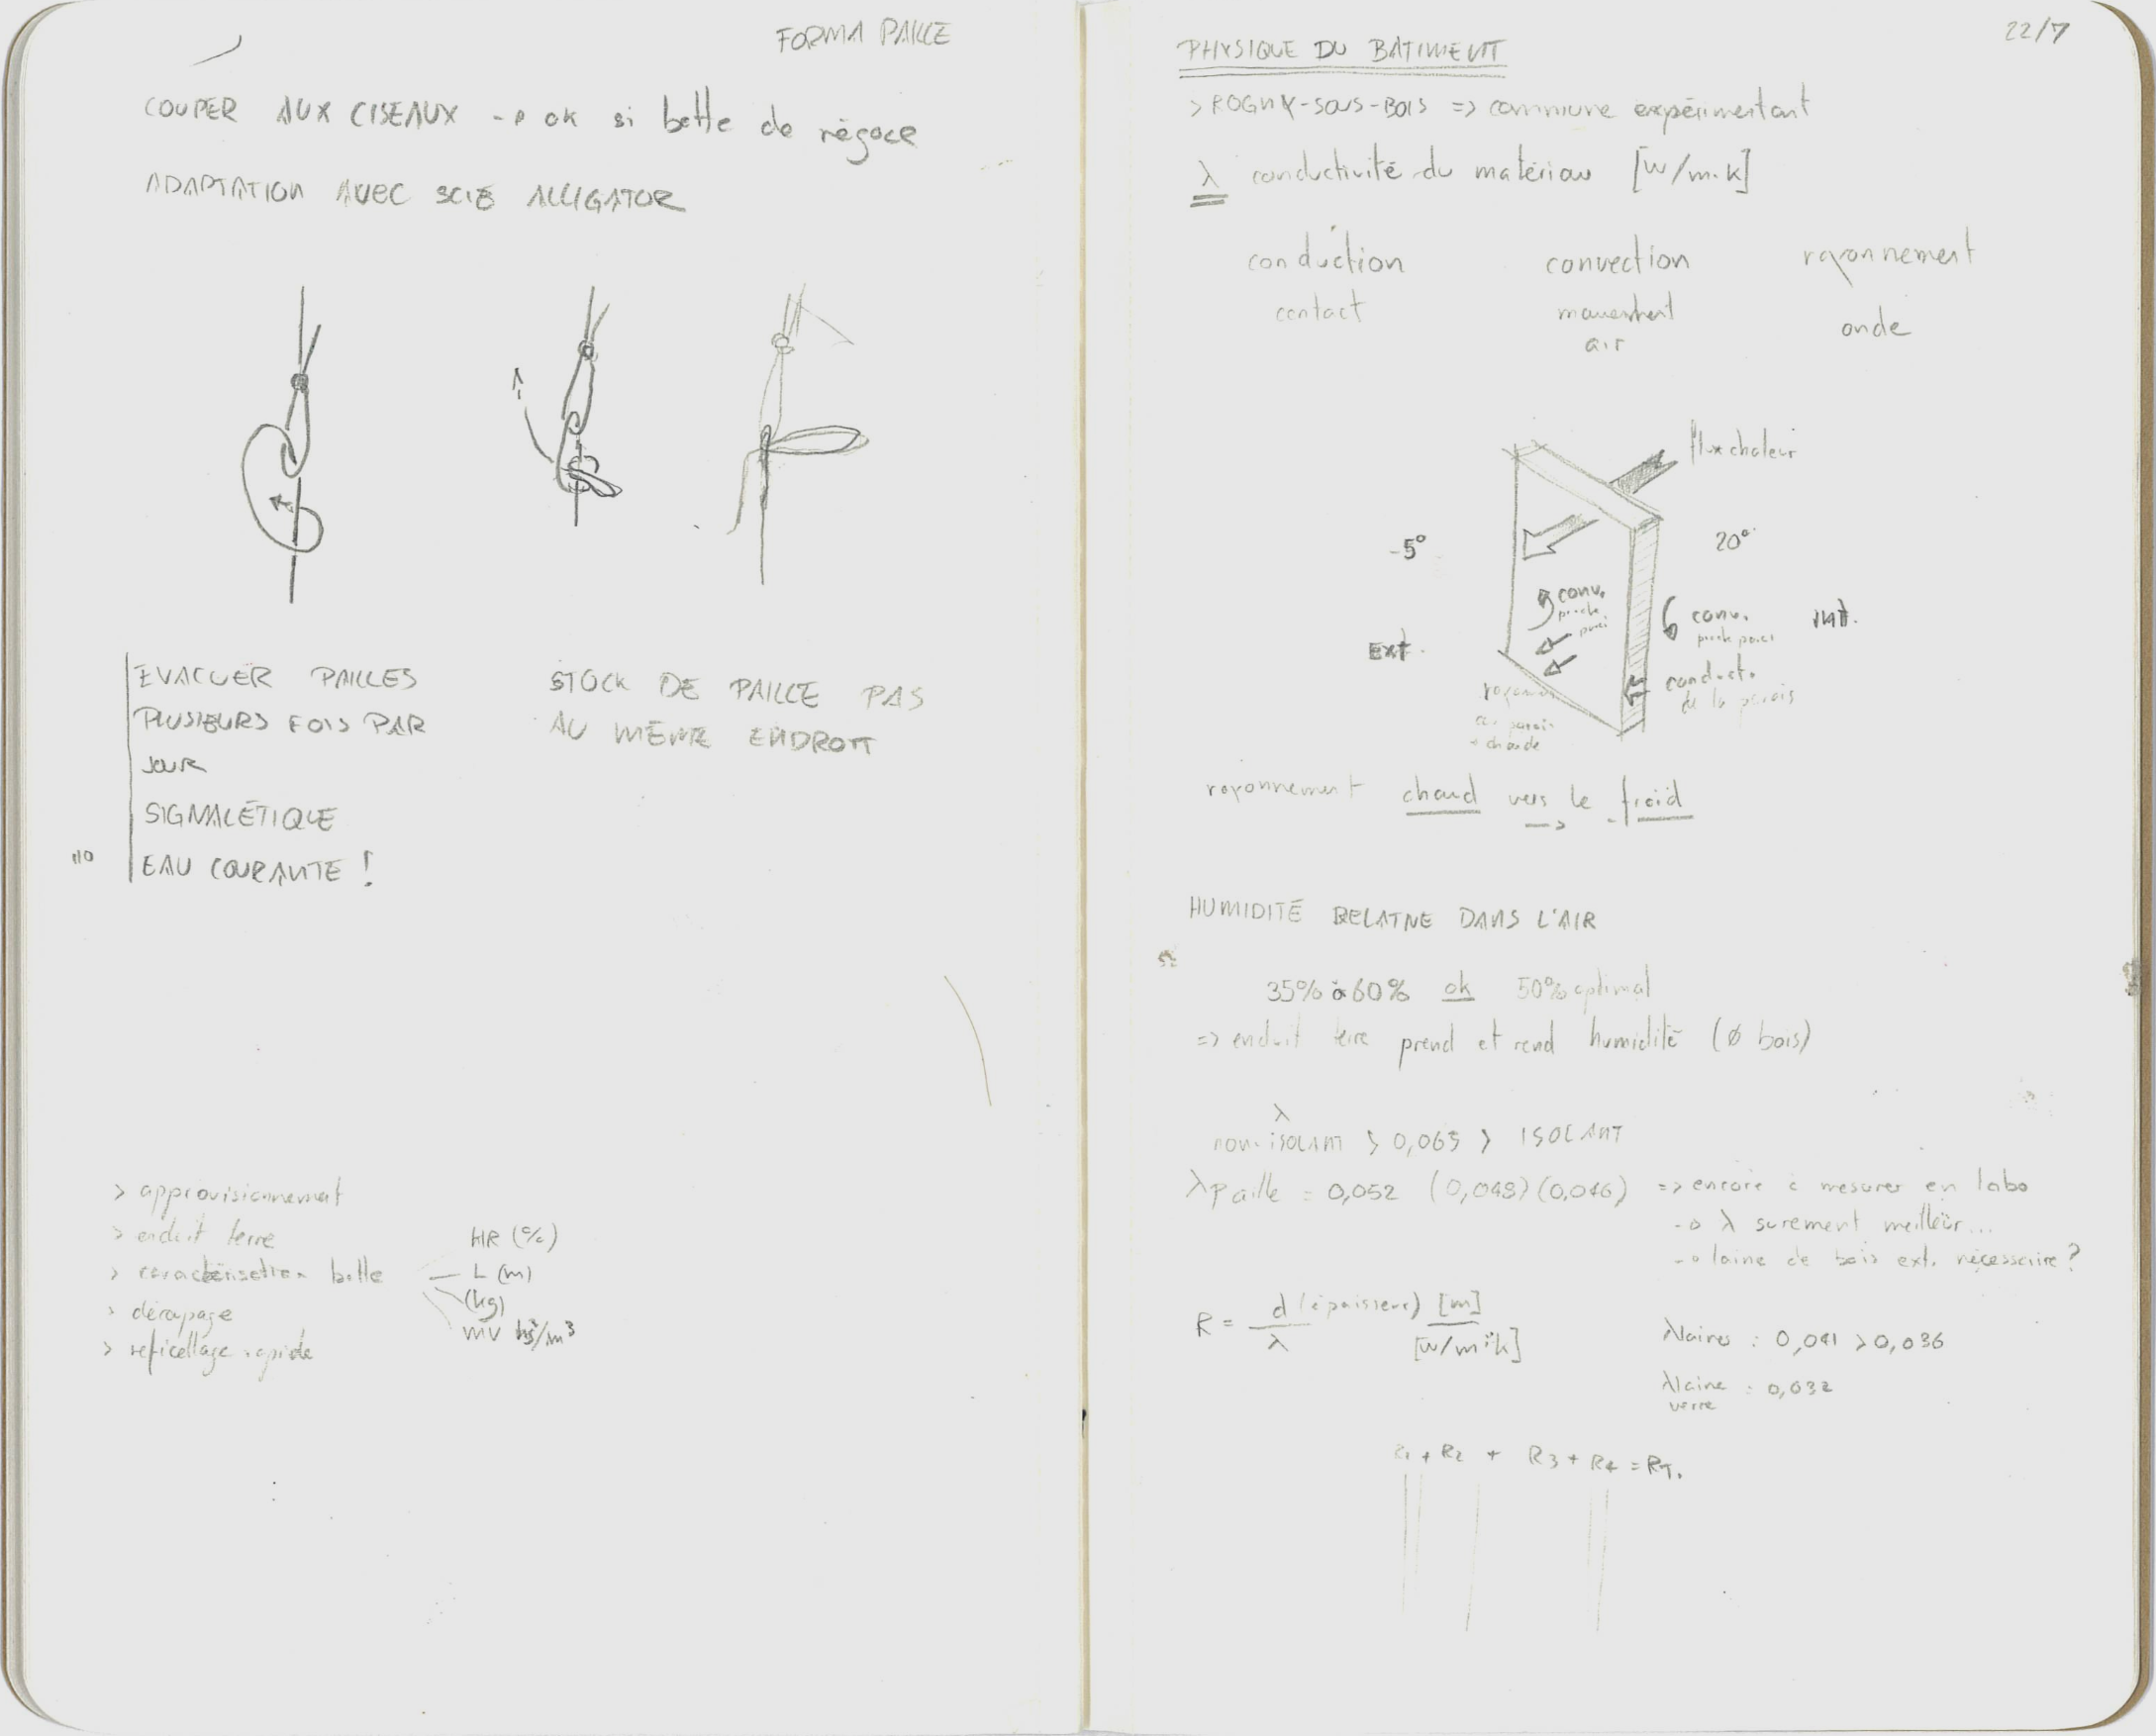 FORMA PAILLE
COUPER AUX CISEAUX -> ok si botte de négoce
ADAPTATION AVEC SCIE ALLIGATOR
EVACUER PAILLES
PLUSIEURS FOIS PAR
JOUR
SIGNALÉTIQUE
EAU COURANTE !
STOCK DE PAILLE PAS
AU MÊME ENDROIT
> approvisionnement
> enduit terre
> caractérisation botte
> dérapage
> reficellage rapide
HR (%)
L (m)
(kg)
MV kg/m³
22/7
PHYSIQUE DU BATIMENT
> ROGNY-SOUS-BOIS => commune expérimentant
λ conductivité du matériau [W/m.K]
conduction convection rayonnement
contact mouvement onde
air
flux chaleur
-5° 20°
conv. proche paroi
conv. proche paroi
Ext. int.
conduct. de la parois
rayonnem
car paroi
+ chaude
rayonnement chaud vers le froid
->
HUMIDITÉ RELATIVE DANS L'AIR
35% à 60% ok 50% optimal
=> enduit terre prend et rend humidité (Ø bois)
λ
non-isolant > 0,065 > ISOLANT
λpaille = 0,052 (0,048) (0,046) => encore à mesurer en labo
-> λ surement meilleur...
-> laine de bois ext. nécessaire ?
R = d (épaisseur) [m]
λ [W/m.K]
λlaines : 0,041 > 0,036
λlaine : 0,032
verre
R1 + R2 + R3 + R4 = RT.